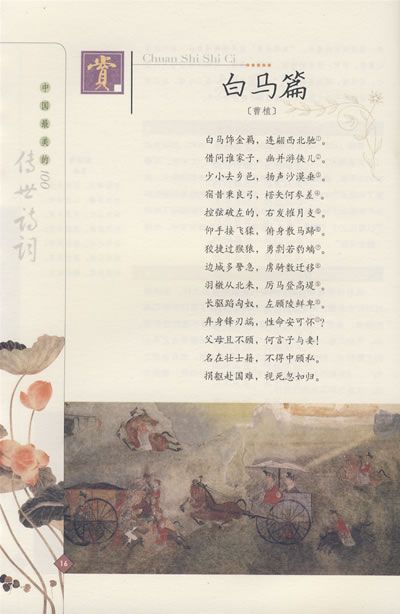 赏
Chuan Shi Shi Ci
白马篇
〔曹植〕
中国最美的100
传世诗词
白马饰金羁，连翩西北驰。
借问谁家子，幽并游侠儿。
少小去乡邑，扬声沙漠垂。
宿昔秉良弓，楛矢何参差。
控弦破左的，右发摧月支。
仰手接飞猱，俯身散马蹄。
狡捷过猴猿，勇剽若豹螭。
边城多警急，虏骑数迁移。
羽檄从北来，厉马登高堤。
长驱蹈匈奴，左顾陵鲜卑。
弃身锋刃端，性命安可怀？
父母且不顾，何言子与妻！
名在壮士籍，不得中顾私。
捐躯赴国难，视死忽如归。
16